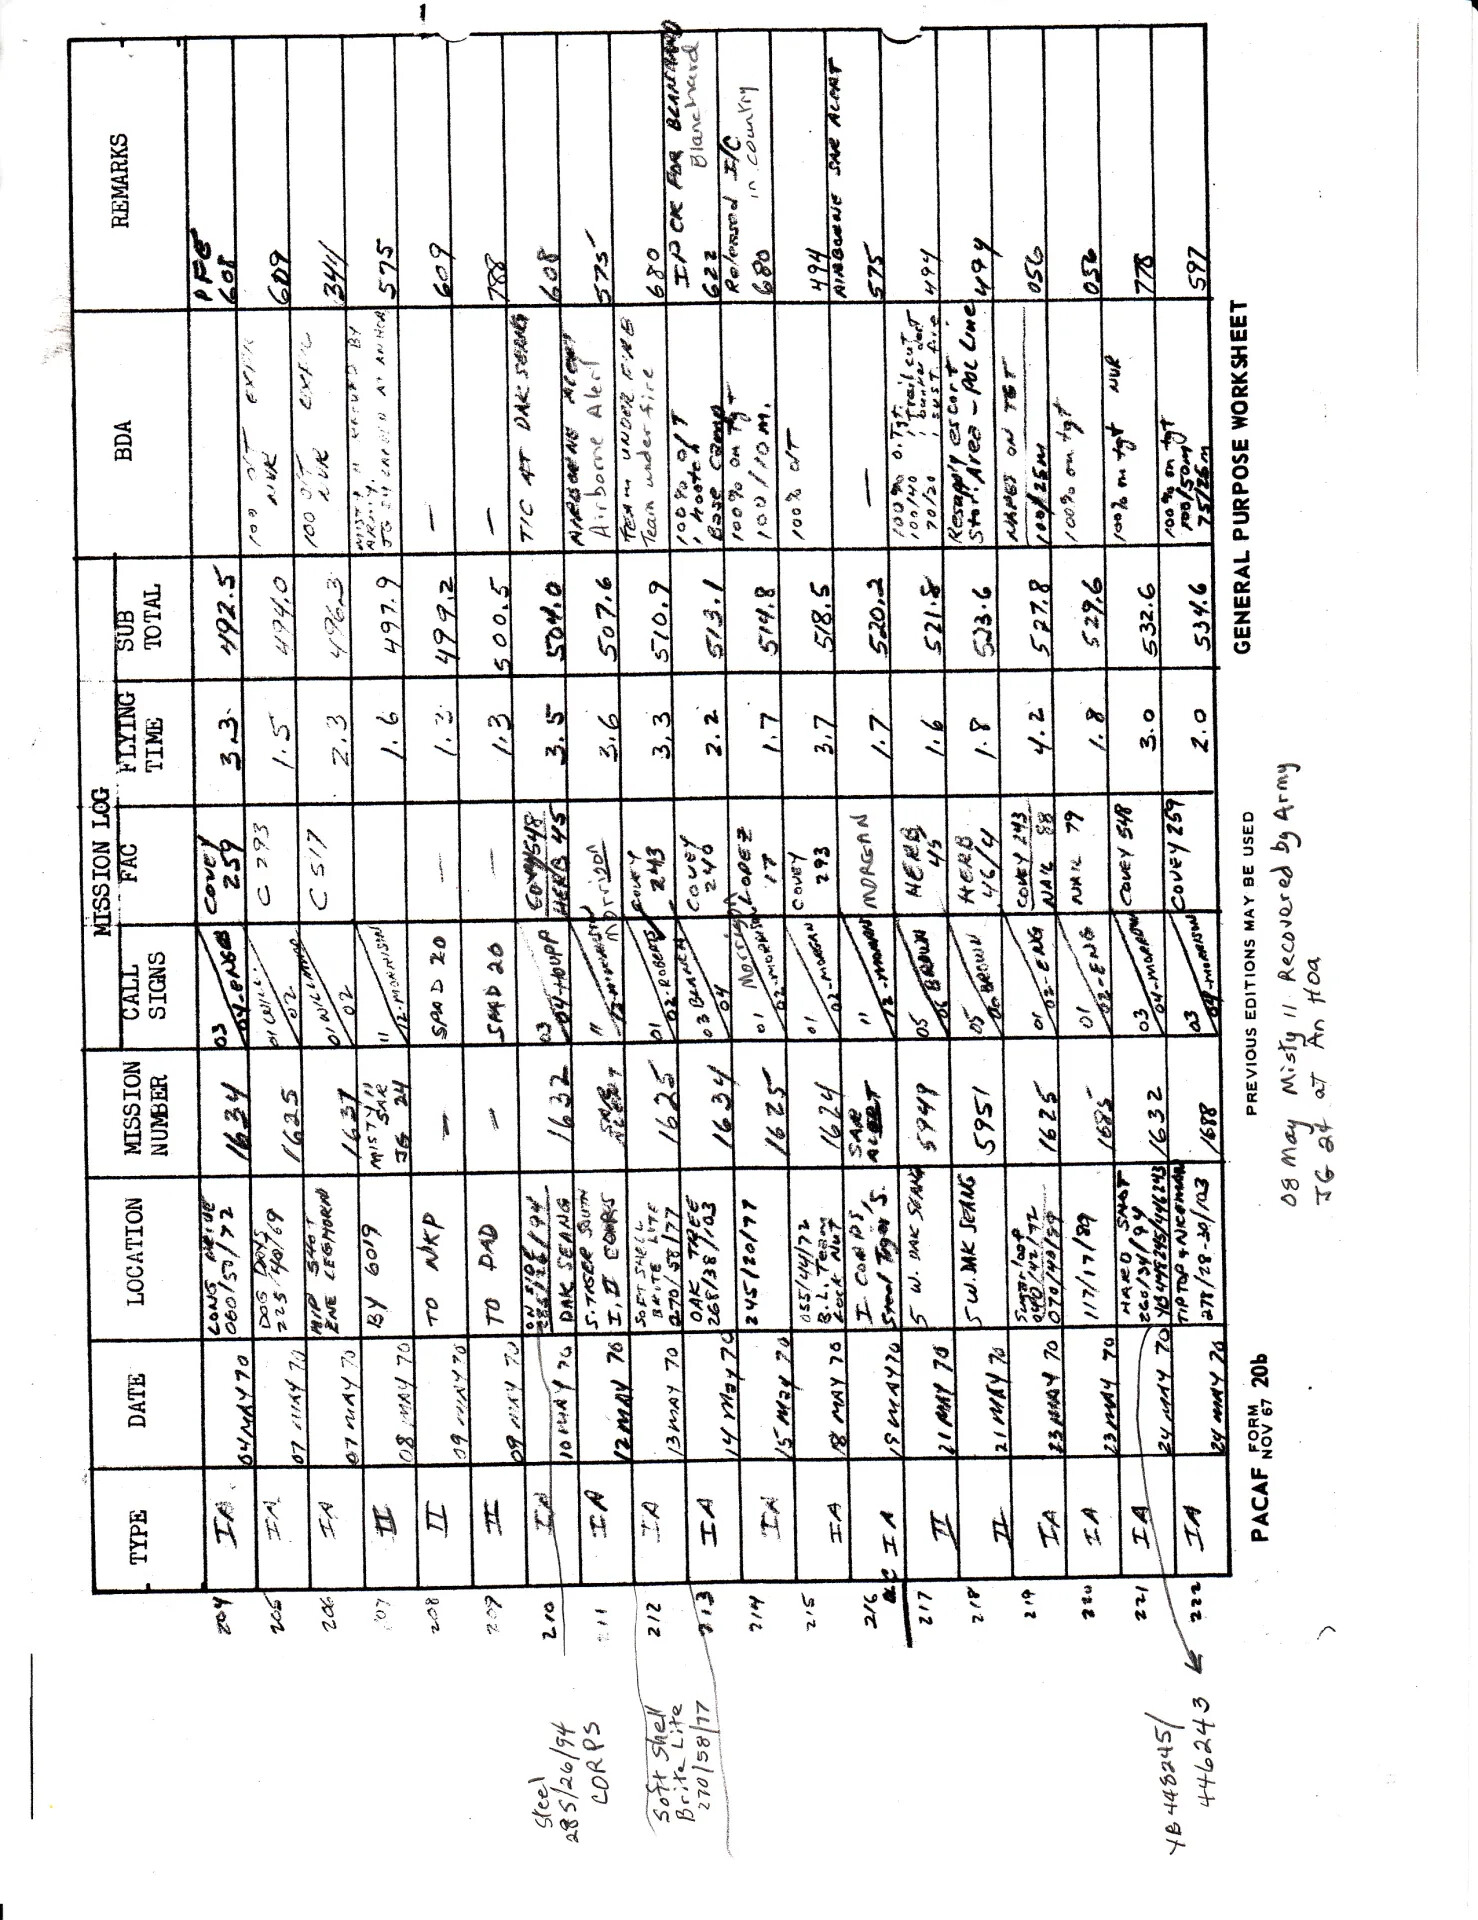 MISSION LOG
TYPE DATE LOCATION MISSION NUMBER CALL SIGNS FAC FLYING TIME SUB TOTAL BDA REMARKS
204 IA 04 MAY 70 060/50/72 1634 03 COVEY 259 3.3 492.5 608
205 IA 07 MAY 70 DOG DAYS 223/40/69 1625 02 C 293 1.5 494.0 100 O/T NVR 609
206 IA 07 MAY 70 1637 02 C 517 2.3 496.3 100 O/T NVR 344
207 II 08 MAY 70 BY 6019 MISTY 11 SAR JG 24 11 12-MORRISON 1.6 497.9 575
208 II 09 MAY 70 TO NKP — SPAD 20 — 1.3 499.2 — 609
209 II 09 MAY 70 TO DAD — SPAD 20 — 1.3 500.5 — 788
210 IA 10 MAY 70 285/26/94 DAK SEANG 1632 03 04-HOUPP HERB 45 3.5 504.0 TIC AT DAK SEANG 608
211 IA 12 MAY 70 S. TIGER SOUTH I, II CORPS SAR ALERT 11 Morrison 3.6 507.6 AIRBORNE ALERT Airborne Alert 575
212 IA 13 MAY 70 SOFT SHELL BRITE LITE 270/58/77 1625 01 02-ROBERTS COVEY 243 3.3 510.9 TEAM UNDER FIRE Team under fire 680
213 IA 14 May 70 OAK TREE 268/38/103 1634 03 04 COVEY 240 2.2 513.1 100% O/T 1 hootch Base Camp 622 IP CK FOR BLANCHARD Blanchard
214 IA 15 MAY 70 245/20/77 1625 01 02-MORRISON Morrison LOPEZ 17 1.7 514.8 100% on Tgt 100/10m. 680 Released I/C in country
215 IA 18 MAY 70 055/44/72 B.L. Team Lock Nut 1624 01 02-MORGAN COVEY 293 3.7 518.5 100% O/T 494
216 IA 19 MAY 70 I CORPS Steel Tiger S. SAR ALERT 11 MORGAN 1.7 520.2 — 575 AIRBORNE SAR ALERT
217 II 21 MAY 70 5 W. DAK SEANG 5949 05 06 BROWN HERB 45 1.6 521.8 100% O.Tgt 100/40 70/20 1 trail cut 494
218 II 21 MAY 70 5 W. DAK SEANG 5951 05 06 BROWN HERB 46/4 1.8 523.6 Resupply escort Stor. Area - POL Line 494
219 IA 23 MAY 70 Sugarloop 070/40/89 1625 01 02-ENG COVEY 243 NAIL 88 4.2 527.8 NAPES ON TGT 100/25m 056
220 IA 23 MAY 70 117/17/89 1685 01 02-ENG NAIL 79 1.8 529.6 100% on tgt 056
221 IA 24 MAY 70 HARD SHOT 260/34/94 YB 448245/446243 1632 03 04-MORROW COVEY 548 3.0 532.6 100% on tgt NVR 778
222 IA 24 MAY 70 278/28-30/103 1688 03 04-MORRISON COVEY 259 2.0 534.6 100% on tgt 100/50m 75/25m 597
Steel
285/26/94
CORPS
Soft Shell
Brite Lite
270/58/77
YB 448245/
446243
PACAF FORM NOV 67 20b
PREVIOUS EDITIONS MAY BE USED
GENERAL PURPOSE WORKSHEET
08 May Misty 11 Recovered by Army
JG 24 at An Hoa